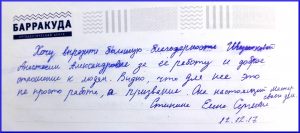 БАРРАКУДА
Хочу выразить большую благодарность
Анастасии Александровне за её работу и доброе
отношение к людям. Видно, что для неё это
не просто работа, а призвание. Она настоящий мастер
своего дела.
Елена Сергеевна
12.12.17